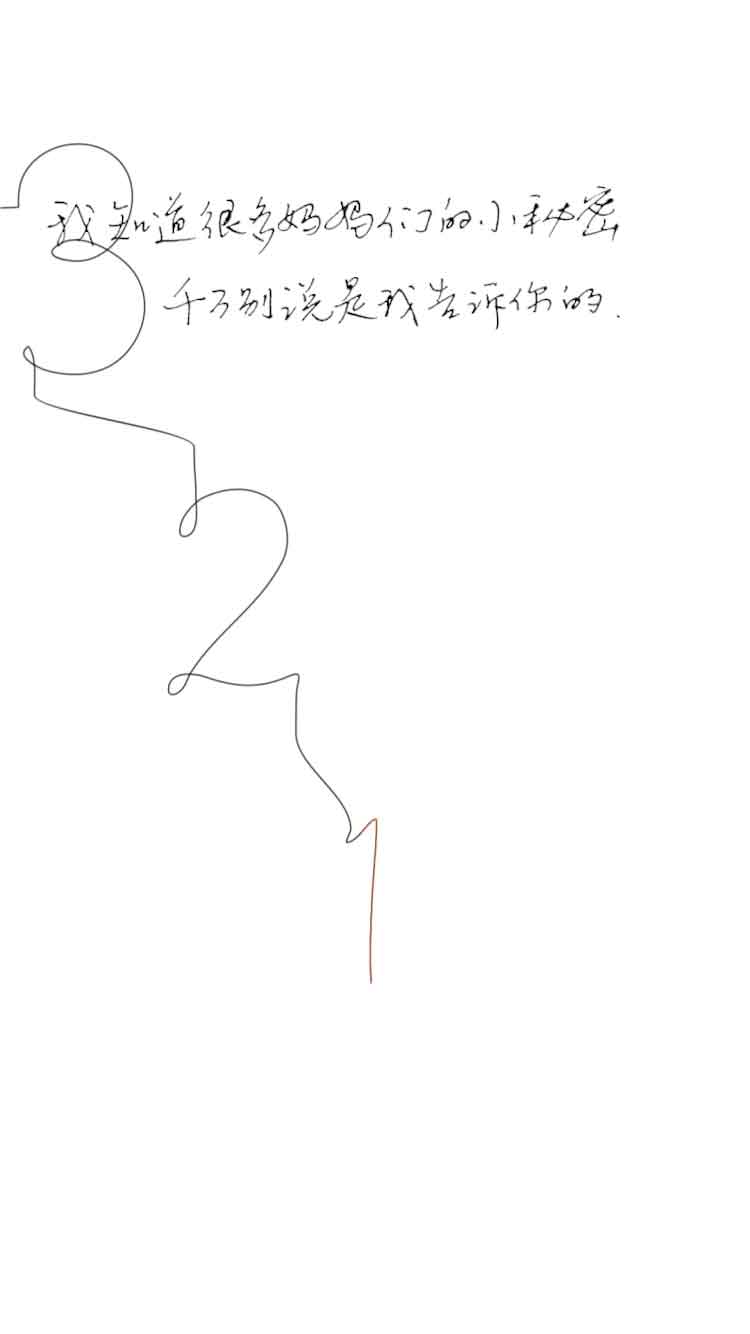 我知道很多妈妈们的小秘密
千万别说是我告诉你的.
3
2
1